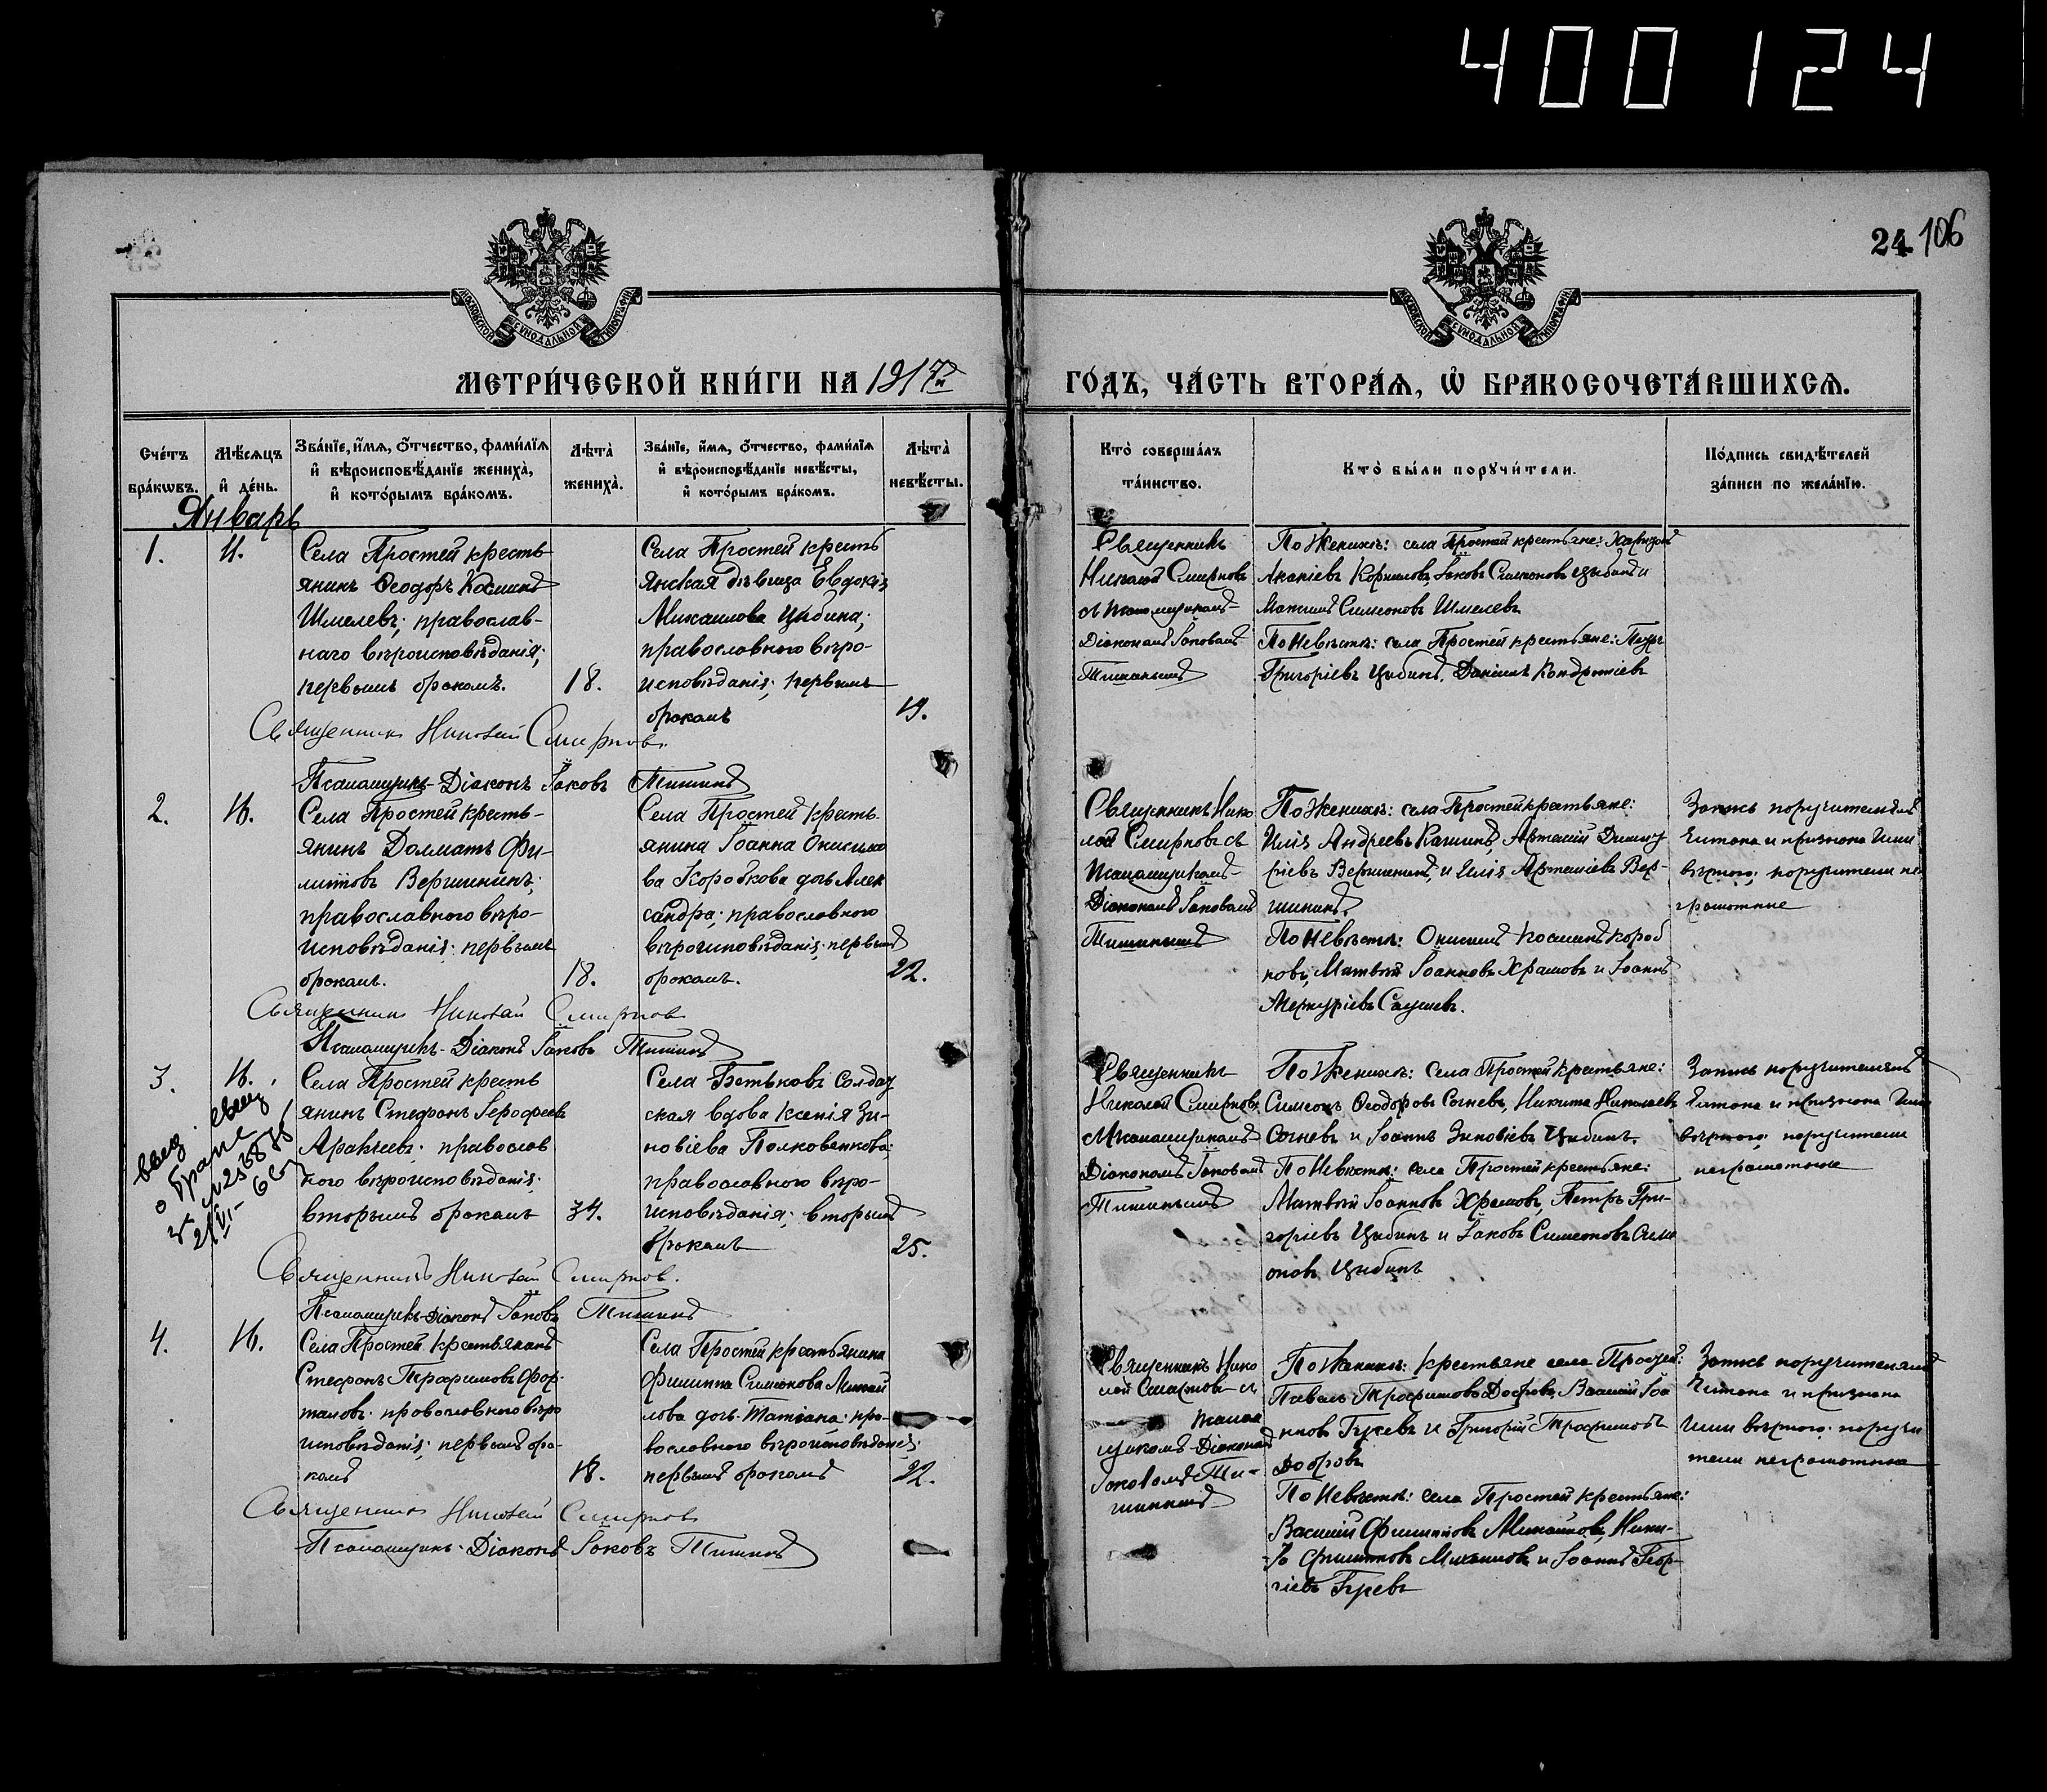 400124
24 106
МОСКОВСКОЙ СѴНОДАЛЬНОЙ ТИПОГРАФІИ
МОСКОВСКОЙ СѴНОДАЛЬНОЙ ТИПОГРАФІИ
МЕТРИ́ЧЕСКОЙ КНИ́ГИ НА 1917й ГО́ДЪ, ЧА́СТЬ ВТОРА́Я, Ѿ БРАКОСОЧЕТА́ВШИХСЯ.
Сче́тъ
бра́кωвъ.
Мѣ́сяцъ
и҆ де́нь.
Зва́нїе, и҆́мя, ѻ҆́тчество, фами́лїя
и҆ вѣроисповѣ́данїе жениха̀,
и҆ кото́рымъ бра́комъ.
Лѣ́та
жениха̀.
Зва́нїе, и҆́мя, ѻ҆́тчество, фами́лїя
и҆ вѣроисповѣ́данїе невѣ́сты,
и҆ кото́рымъ бра́комъ.
Лѣ́та
невѣ́сты.
Кто̀ соверша́лъ
та́инство.
Кто̀ бы́ли порꙋчи́тели.
По́дпись свидѣ́телей
за́писи по жела́нїю.
Январь
1.
11.
Села Простей кресть
янинъ Ѳеодоръ Косминъ
Шмелевъ; православ-
наго вѣроисповѣданія;
первымъ бракомъ.
18.
Села Простей кресть
янская дѣвица Евдокія
Михаилова Цыбина;
православнаго вѣро-
исповѣданія; первымъ
бракомъ
19.
Священникъ
Николай Смирновъ
съ псаломщикомъ-
Діакономъ Іаковомъ
Тишинымъ
По Женихѣ: села Простей крестьяне: Харитонъ
Акакіевъ Корниловъ, Іаковъ Симеоновъ Цыбинъ и
Максимъ Симеоновъ Шмелевъ
По Невѣстѣ: села Простей крестьяне: Петръ
Григоріевъ Цыбинъ, Даніилъ Кондратіевъ
Священникъ Николай Смирновъ.
Псаломщикъ-Діаконъ Іаковъ Тишинъ
2.
16.
Села Простей кресть-
янинъ Далматъ Фи-
липповъ Вершининъ;
православнаго вѣро-
исповѣданія; первымъ
бракомъ.
18.
Села Простей кресть-
янина Іоанна Онисимо
ва Коробкова дочь Алек
сандра; православнаго
вѣроисповѣданія; первымъ
бракомъ.
22.
Священникъ Нико
лай Смирновъ съ
псаломщикомъ-
Діакономъ Іаковомъ
Тишинымъ
По Женихѣ: села Простей крестьяне:
Илія Андреевъ Качинъ, Артемій Димит
ріевъ Вершининъ, и Илія Артеміевъ Вер-
шининъ.
По Невѣстѣ: Онисимъ Косминъ Короб
ковъ, Матвѣй Іоанновъ Храмовъ и Іоаннъ
Меркуріевъ Саушевъ.
Запись поручителямъ
читана и признана ими
вѣрною; поручители не
грамотные
Священникъ Николай Смирновъ
Псаломщикъ-Діаконъ Іаковъ Тишинъ
3.
16.
Села Простей кресть
янинъ Стефанъ Іерофеевъ
Аракчеевъ; православ
наго вѣроисповѣданія;
вторымъ бракомъ
34.
Села Бетьковъ солдат
ская вдова Ксенія Зи-
новіева Полковенкова;
православнаго вѣро-
исповѣданія; вторымъ
бракомъ
25.
Священникъ
Николай Смирновъ
съ псаломщикомъ
Діакономъ Іаковомъ
Тишинымъ
По Женихѣ: села Простей крестьяне:
Симеонъ Ѳеодоровъ Согневъ, Никита Николаевъ
Согневъ и Іоаннъ Зиновіевъ Цыбинъ.
По Невѣстѣ: села Простей крестьяне:
Матвѣй Іоанновъ Храмовъ, Петръ Гри-
горіевъ Цыбинъ и Іаковъ Симеоновъ Симе
оновъ Цыбинъ
Запись поручителямъ
читана и признана ими
вѣрною; поручители
неграмотные
о браке
Священникъ Николай Смирновъ.
Псаломщикъ-Діаконъ Іаковъ Тишинъ
4.
16.
Села Простей крестьянинъ
Стефанъ Трофимовъ
православнаго вѣро
исповѣданія; первымъ бра-
комъ
18.
Села Простей крестьянина
Филиппа Симеонова Михай
лова дочь Татіана; пра-
вославнаго вѣроисповѣданія;
первымъ бракомъ
22.
Священникъ Нико
лай Смирновъ съ
псалом
щикомъ-Діакономъ
Іаковомъ Ти-
шинымъ
По Женихѣ: крестьяне села Простей:
Павелъ Трофимовъ Добровъ, Василій Іоа
нновъ Гусевъ и Григорій Трофимовъ
Добровъ
По Невѣстѣ: села Простей крестьяне:
Василій Филипповъ Михайловъ, Ники-
та Филипповъ Михайловъ и Іоаннъ Геор-
гіевъ Гусевъ
Запись поручителямъ
читана и признана
ими вѣрною; поручи
тели неграмотные
Священникъ Николай Смирновъ
Псаломщикъ-Діаконъ Іаковъ Тишинъ